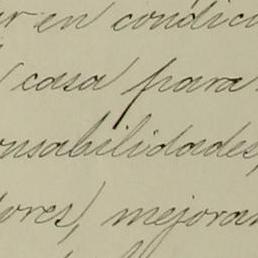 ar en condici
casa para
onsabilidades,
tores, mejoran